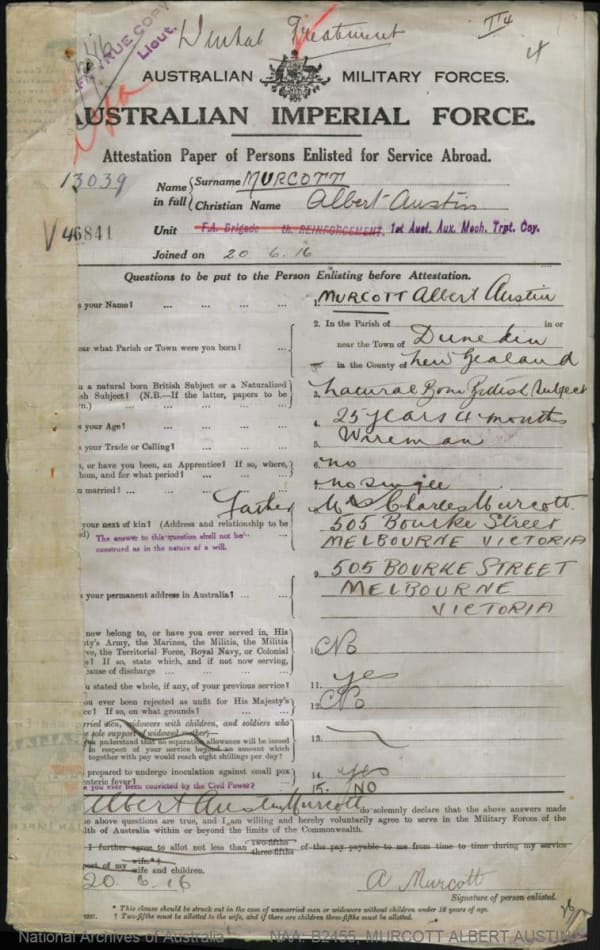 TRUE COPY
Lieut.
Dental Treatment
AUSTRALIAN MILITARY FORCES.
AUSTRALIAN IMPERIAL FORCE.
Attestation Paper of Persons Enlisted for Service Abroad.
13039
Name in full { Surname MURCOTT
Christian Name Albert Austin
V 46841
Unit F.A. Brigade th REINFORCEMENT, 1st Aust. Aux. Mech. Trpt. Coy.
Joined on 20 6. 16
Questions to be put to the Person Enlisting before Attestation.
s your Name? ... ... ... ... 1. MURCOTT Albert Austin
2. In the Parish of in or
ear what Parish or Town were you born? ... near the Town of Dunedin
in the County of New Zealand
u a natural born British Subject or a Naturalized
sh Subject? (N.B.—If the latter, papers to be 3. Natural Born British Subject
n.)
s your Age? ... ... ... ... 4. 25 years 4 months
s your Trade or Calling? ... ... ... 5. Wireman
, or have you been, an Apprentice? If so, where, 6. no
hom, and for what period? ... ...
u married? ... ... ... no single
Father Charles Murcott
your next of kin? (Address and relationship to be 505 Bourke Street
d) MELBOURNE VICTORIA
The answer to this question shall not be
construed as in the nature of a will.
9. 505 BOURKE STREET
s your permanent address in Australia? ... MELBOURNE
VICTORIA
now belong to, or have you ever served in, His
ty's Army, the Marines, the Militia, the Militia
ve, the Territorial Force, Royal Navy, or Colonial 10. No
s? If so, state which, and if not now serving,
cause of discharge ... ... ...
u stated the whole, if any, of your previous service? 11. yes
ou ever been rejected as unfit for His Majesty's 12. No
ce? If so, on what grounds? ... ...
rried men, widowers with children, and soldiers who
sole support of widowed mother)—
u understand that no separation allowance will be issued 13.
in respect of your service beyond an amount which
together with pay would reach eight shillings per day?
prepared to undergo inoculation against small pox 14. yes
nteric fever?
e you ever been convicted by the Civil Power? 15. NO
Albert Austin Murcott do solemnly declare that the above answers made
he above questions are true, and I am willing and hereby voluntarily agree to serve in the Military Forces of the
lth of Australia within or beyond the limits of the Commonwealth.
I further agree to allot not less than two-fifths three-fifths of the pay payable to me from time to time during my service
port of my wife*† wife and children.
20. 6. 16
A Murcott
Signature of person enlisted.
* This clause should be struck out in the case of unmarried men or widowers without children under 18 years of age.
† Two-fifths must be allotted to the wife, and if there are children three-fifths must be allotted.
National Archives of Australia NAA: B2455, MURCOTT ALBERT AUSTIN